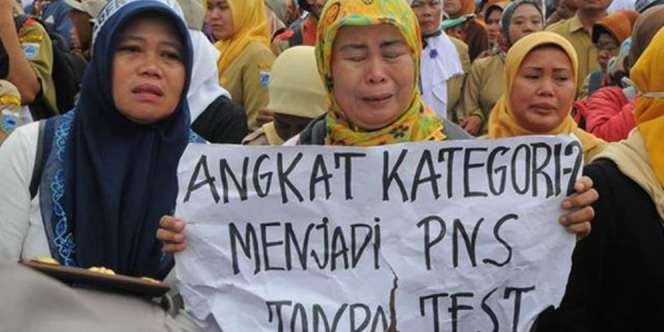 ANGKAT KATEGORI-2
MENJADI PNS
TANPA TEST